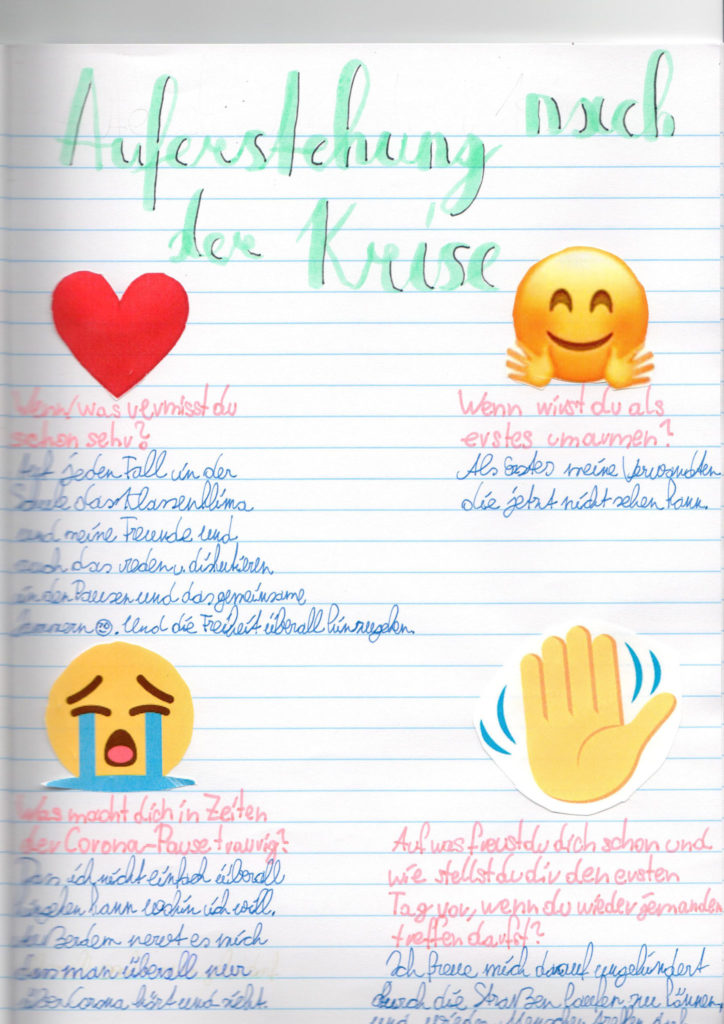 Auferstehung nach
der Krise
Wenn/was vermisst du
schon sehr?
Auf jeden Fall in der
Schule das Klassenklima
und meine Freunde und
auch das reden u. diskutieren
in den Pausen und das gemeinsame
Jammern. Und die Freiheit überall hinzugehen.
Wenn wirst du als
erstes umarmen?
Als Erstes meine Verwandten
die jetzt nicht sehen kann.
Was macht dich in Zeiten
der Corona-Pause traurig?
Das ich nicht einfach überall
hingehen kann wohin ich will.
Außerdem nervt es mich
das man überall nur
über Corona hört und sieht.
Auf was freust du dich schon und
wie stellst du dir den ersten
Tag vor, wenn du wieder jemanden
treffen darfst?
Ich freue mich darauf ungehindert
durch die Straßen laufen zu können
und wieder Menschen treffen